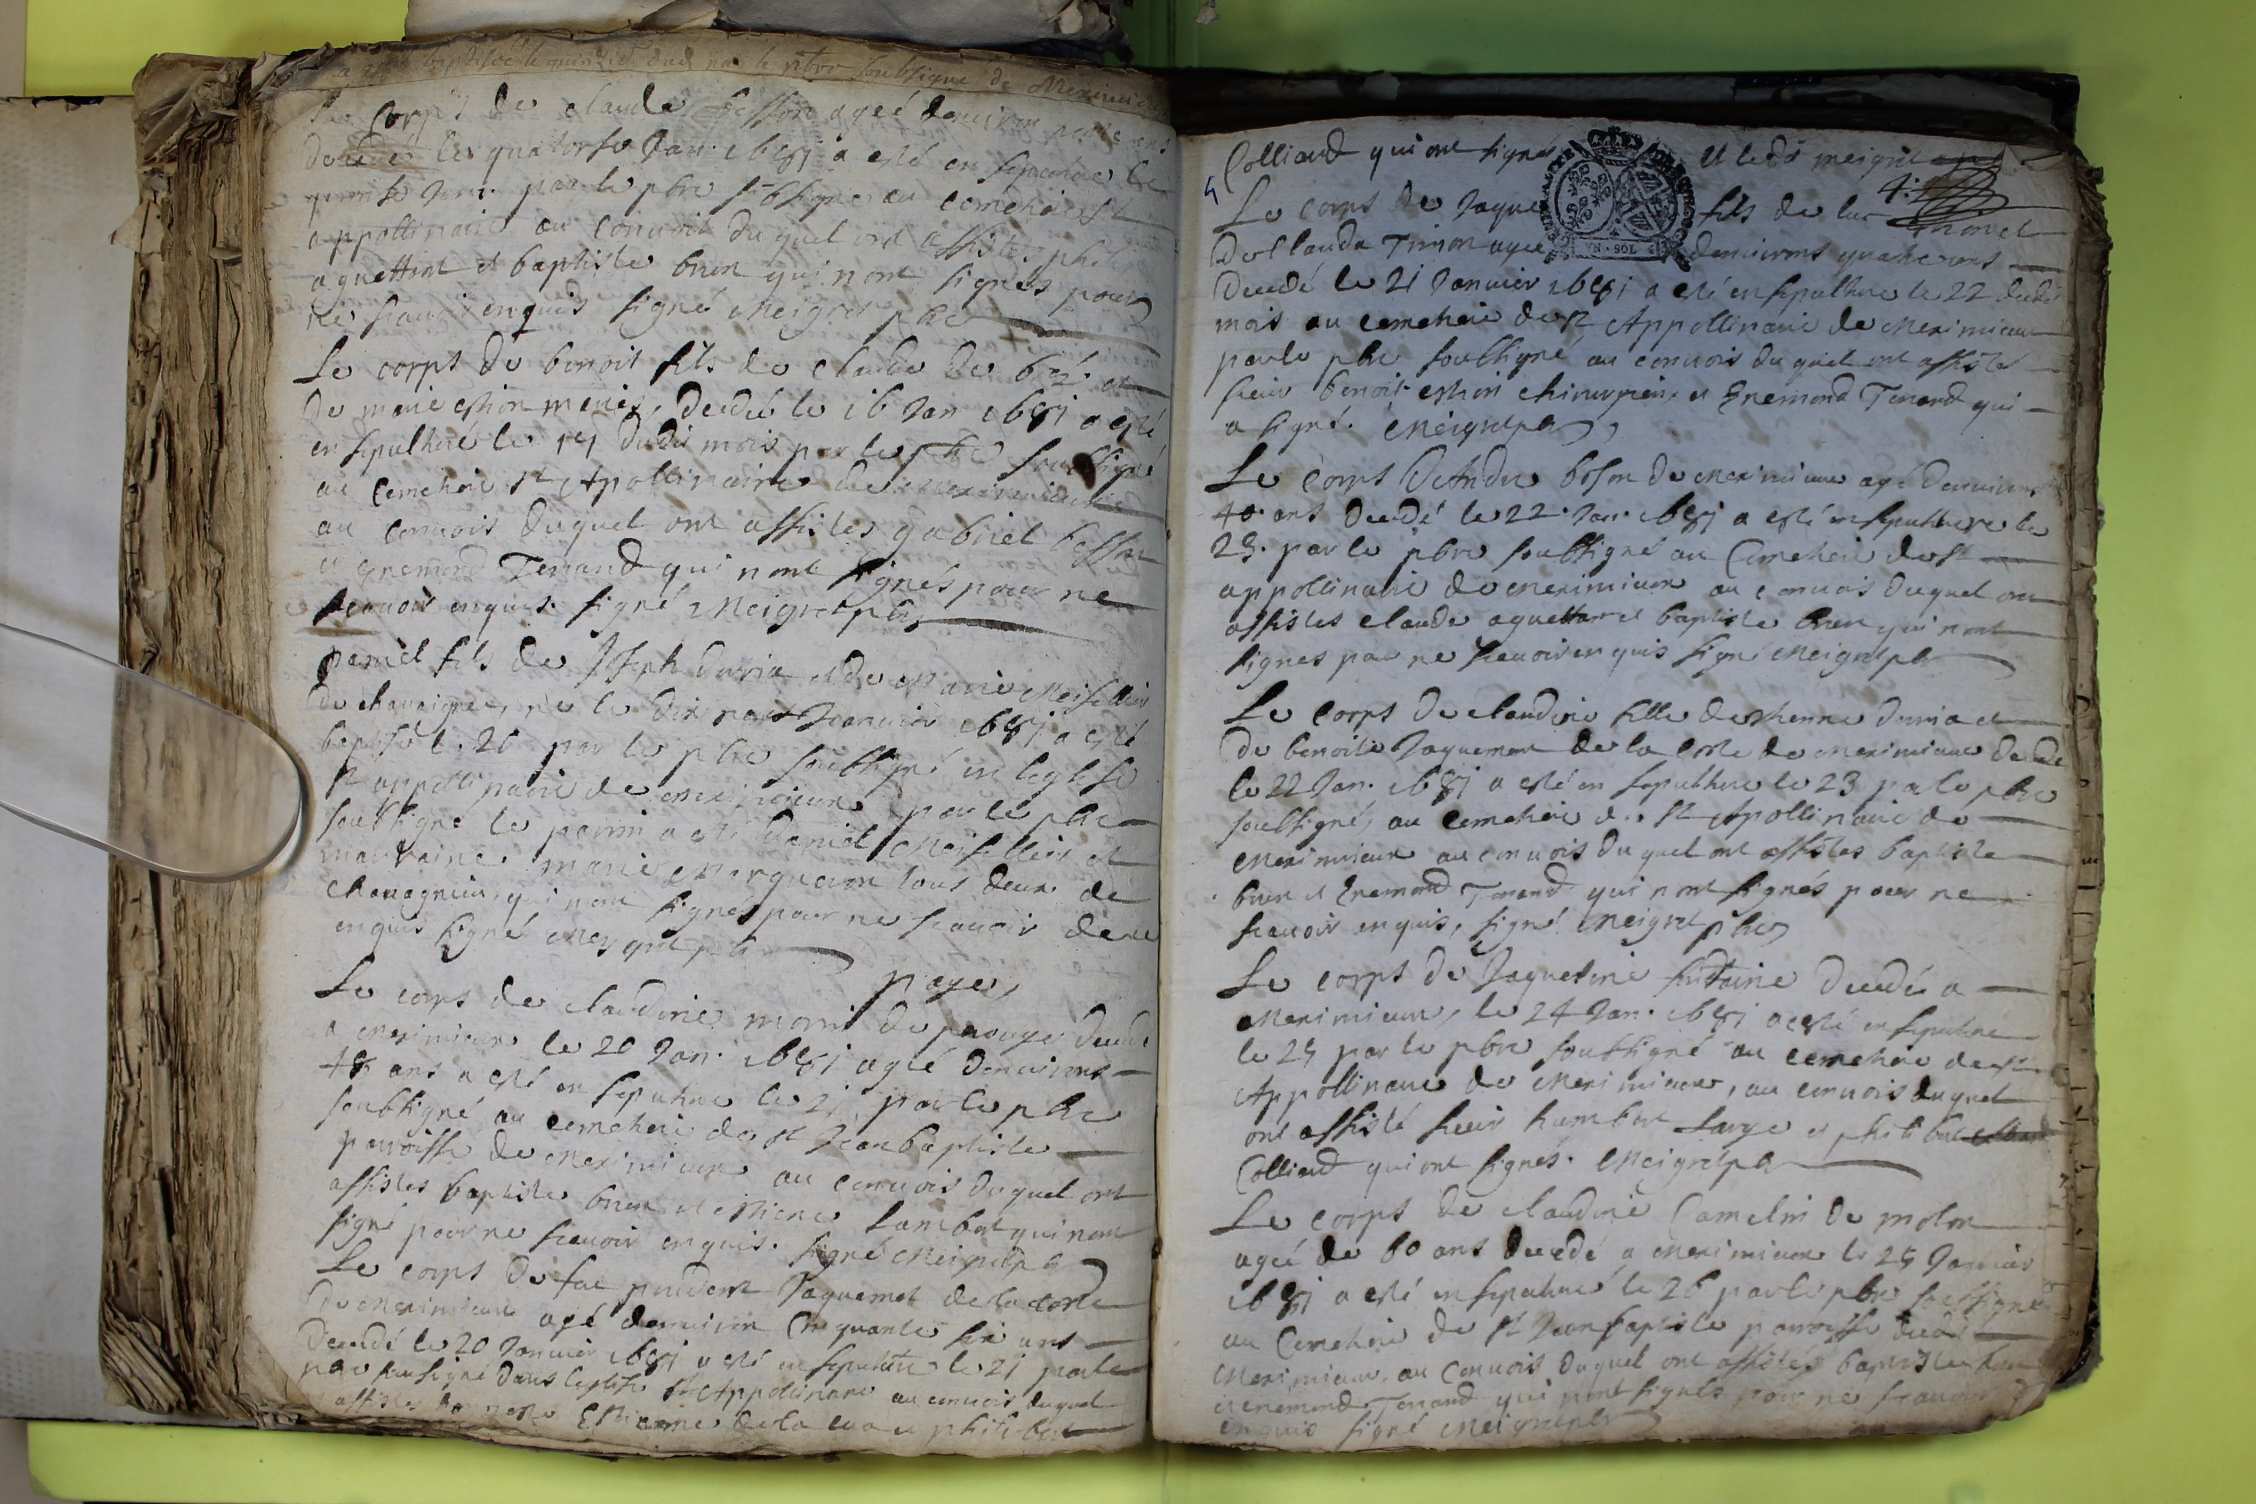 Le Corps de claude besson ageé denviron
decedé le quatorse Jan. 1681 a esté en sepulture le
par le pbre sbsigné au cemetiere St
appollinaire au convoir duquel ont assistes
aguettant et baptiste brun qui nont signés pour
ne scavoir enquis signé Meigret pbre
Le corps de benoit fils de claude de et
de marie estion decedé le 16 Jan 1681 a esté
en sepulturé le 17 dudit mois par le pbre soubsigné
au cemetiere St Apollinaire de meximieux
au convois duquel ont assistes gabriel besson
et Enemond Tenand qui nont signés pour ne
scavoir enquis. signé Meigret pbr
daniel fils de Joseph durria et de Marie
de chavaigneu, né le dix neuf Janvier 1681 a esté
baptisé le 20 par le pbre soubsigné en leglise
St appollinaire de meximieux par le pbre
soubsigné le parrin a esté daniel et
marraine marie tous deux de
chavagnieu, qui nont signés pour ne scavoir de ce
enquis signé Meigret pbr
Le corps de claudine de perouges decedé
a meximieux le 20 Jan. 1681 ageé denvirons
48 ans a esté en sepulture le 21 par le pbre
soubsigné au cemetiere de St Jean baptiste
parroisse de meximieux au convois duquel ont
assistes baptiste brun et estiene Lambert qui nont
signé pour ne scavoir enquis. signé Meigret pbr
Le corps de feu prudent Jaquemet de la coste
de meximieux agé denviron cinquante six ans
decedé le 20 Janvier 1681 a esté en sepulture le 21 par le
pbre soussigné dans leglise St Appollinaire au convois duquel
ont assistes Estienne et philibert
Colliard qui ont signés et ledit meigret
4
4.
Le corps de Jaque fils de luc monet
de Clauda Trinon agee denvirons quatre ans
UN · SOL
Decedé le 21 Janvier 1681 a esté en sepulture le 22 dudit
mois au cemetiere de St Appollinaire de meximieux
par le pbre soubsigné au convois duquel ont assistes
sieur benoit estion chirurgien et Enemond Tenand qui
a signé. Meigret pbr
Le corps de boson de meximieux agé denvirons
40. ans decedé le 22. Jan. 1681 a esté en sepulture le
23. par le pbre soubsigné au Cemetiere de St
appollinaire de meximieux au convois duquel ont
assistes claude aguettant et baptiste brun qui nont
signes pour ne scavoir enquis signé Meigret pbr
Le corps de claudine fille destienne durria et
de benoite Jaquemet de la Coste de meximieux decedé
le 22 Jan. 1681 a esté en sepulture le 23 par le pbre
soubsigné, au cemetiere de St Apollinaire de
Meximieux au convois duquel ont assistes baptiste
brun et Enemond Tenand qui nont signés pour ne
scavoir enquis, signé Meigret pbre
Le corps de Jaquetine fontaine decedé a
Meximieux, le 24 Jan. 1681 a esté en sepulture
le 25 par le pbre soubsigné au cemetiere de St
Appollinaire de Meximieux, au convois duquel
ont assisté sieur humbert Large et philibert
Colliard qui ont signés. Meigret pbr
Le corps de claudine Camelin de molon
ageé de 60 ans decedé a Meximieux le 25 Janvier
1681 a esté en sepulture le 26 par le pbre soussigné
au Cemetiere de St Jean baptiste parroisse dudit
Meximieux, au convois duquel ont assistés baptiste brun
et enemond Tenand qui nont signés pour ne scavoir
enquis signé Meigret pbr